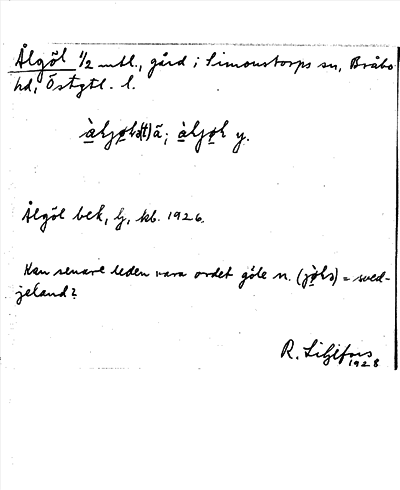 Ålgöl 1/2 mtl., gård i Simonstorps sn, Bråbo
hd, Östgtl. l.
å; y.
Ålgöl bek, lj, kb. 1926.
Kan senare leden vara ordet göle n. = sved-
jeland?
R. Liljefors
1928